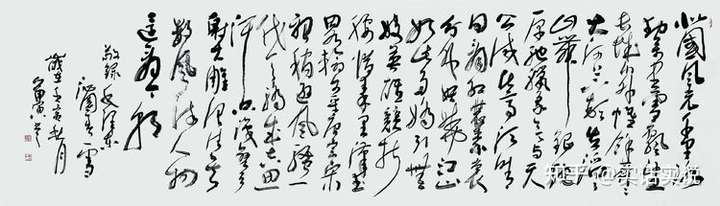 北国风光千里冰
封万里雪飘望
长城内外惟余莽莽
大河上下顿失滔滔
山舞银蛇
原驰蜡象欲与天
公试比高须晴
日看红装素裹
分外妖娆江山
如此多娇引无
数英雄竞折
腰惜秦皇汉武
略输文采唐宗宋
祖稍逊风骚一
代天骄成吉思
汗只识弯弓
射大雕俱往矣
数风流人物
还看今朝
敬录毛泽东
沁园春雪
壬寅秋月
知乎